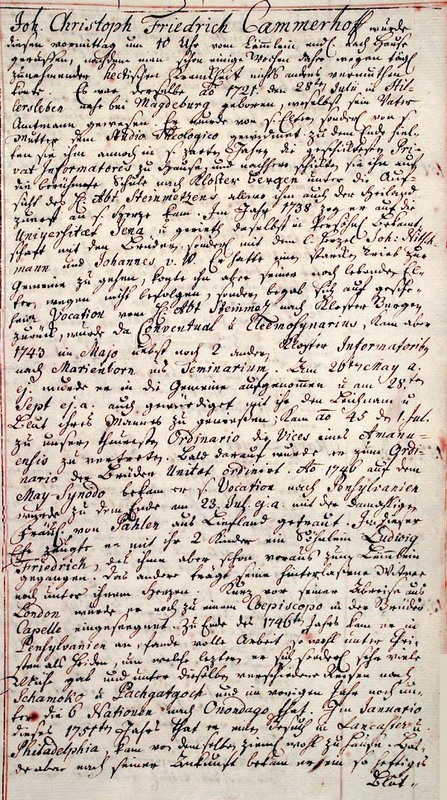 Joh. Christoph Friedrich Cammerhoff wurde
diesen vormittag um 10 Uhr vom Lämmlein nach Hause
gerufen, nachdem man schon einige Wochen daher wegen seiner
zunehmender hectischen Kranckheit nichts anders vermuthen
konte. Es war derselbe Ao 1721 den 28ten Julii in Hil-
lersleben nahe bey Magdeburg geboren, woselbst sein Vater
Amtmann gewesen. Er wurde von sonderl. von s.
Mutter dem Studio Theologico gewidmet, zu dem Ende hiel-
ten sie ihm annoch in s. zarten Jahre die geschicktesten Pri-
vat Informatores zu Hause, und nachher schickten sie ihn auf
die berühmte Schule nach Kloster Bergen unter die Auf-
sicht des H. Abt Steinmetzens, allwo ihm auch der Heiland
zuerst an s. Herze kam. Im Jahr 1738 zog er auf die
Universitaet Jena, u. gerieth daselbst in Bekant-
schaft mit den Brüdern, sonderl. mit dem l. Joh. Nitsch-
mann und Johannes v. W. Er hatte einen starken Trieb zur
Gemeine zu gehen, konte ihn aber seiner noch lebenden El-
tern wegen nicht befolgen, sondern begab sich auf gesche-
hene Vocation vom H. Abt Steinmetz nach Kloster Bergen
zurück, wurde da Conventual u. Eleemosynarius, kam aber
1743 im Majo nebst noch 2 andern Kloster Informatoribus
nach Marienborn ins Seminarium. Am 26ten May a.
ej. wurde er in die Gemeine aufgenommen u. am 28ten
Sept. ej. a. auch gewürdiget mit ihr den Leichnam u.
Blut ihres Mannes zu geniessen; kam ao 45 den 1. Jul.
zu unserm theuresten Ordinario die Vices eines Amanu-
ensis zu vertreten. Bald darauf wurde er zum Ordi-
nario der Brüder Unität ordinirt. Ao 1746 auf dem
May-Synodo bekam er s. Vocation nach Pensylvanien
wurde zu dem Ende am 23 Jul. ej. a. mit der damahligen
Fräul. von Pahlen aus Liefland getraut. In dieser
Ehe zeugte er mit ihr 2 Kinder, ein Söhnlein Ludwig
Friedrich, das ihm aber schon voraus zum Lämmlein
gegangen. Das andere trägt seine hinterlassene Witwe
noch unter ihrem Herzen. Kurz vor seiner Abreise aus
London wurde er noch zu einem Coepiscopo in der Brüder
Capelle eingesegnet. Zu Ende des 1746ten Jahrs kam er in
Pensylvanien an, fand volle Arbeit sowohl unter Chri-
sten als Heiden, um welche letztern er sich sonderl. sehr viele
Mühe gab und unter dieselben verschiedene Reisen nach
Schamoko u. Pachgatgoch und im vorigen Jahr noch un-
ter die 6 Nationen nach Onondago that. Im Januario
dieses 1751ten Jahrs that er einen Besuch in Lancaster u.
Philadelphia, kam von demselben ziemlich wohl zu Hause. Bal-
de aber nach seiner Ankunft bekam er einen so heftigen
Blut-